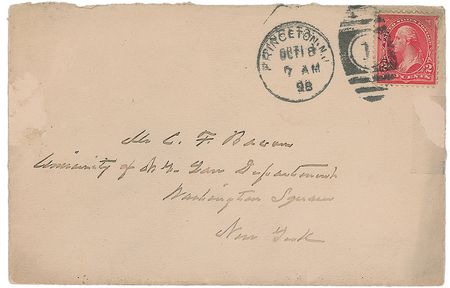 PRINCETON, N.J.
OCT 18
7 AM
98
1
2 CENTS 2
Mr C. F. Bacon
University of N.Y. Law Department
Washington Square
New York